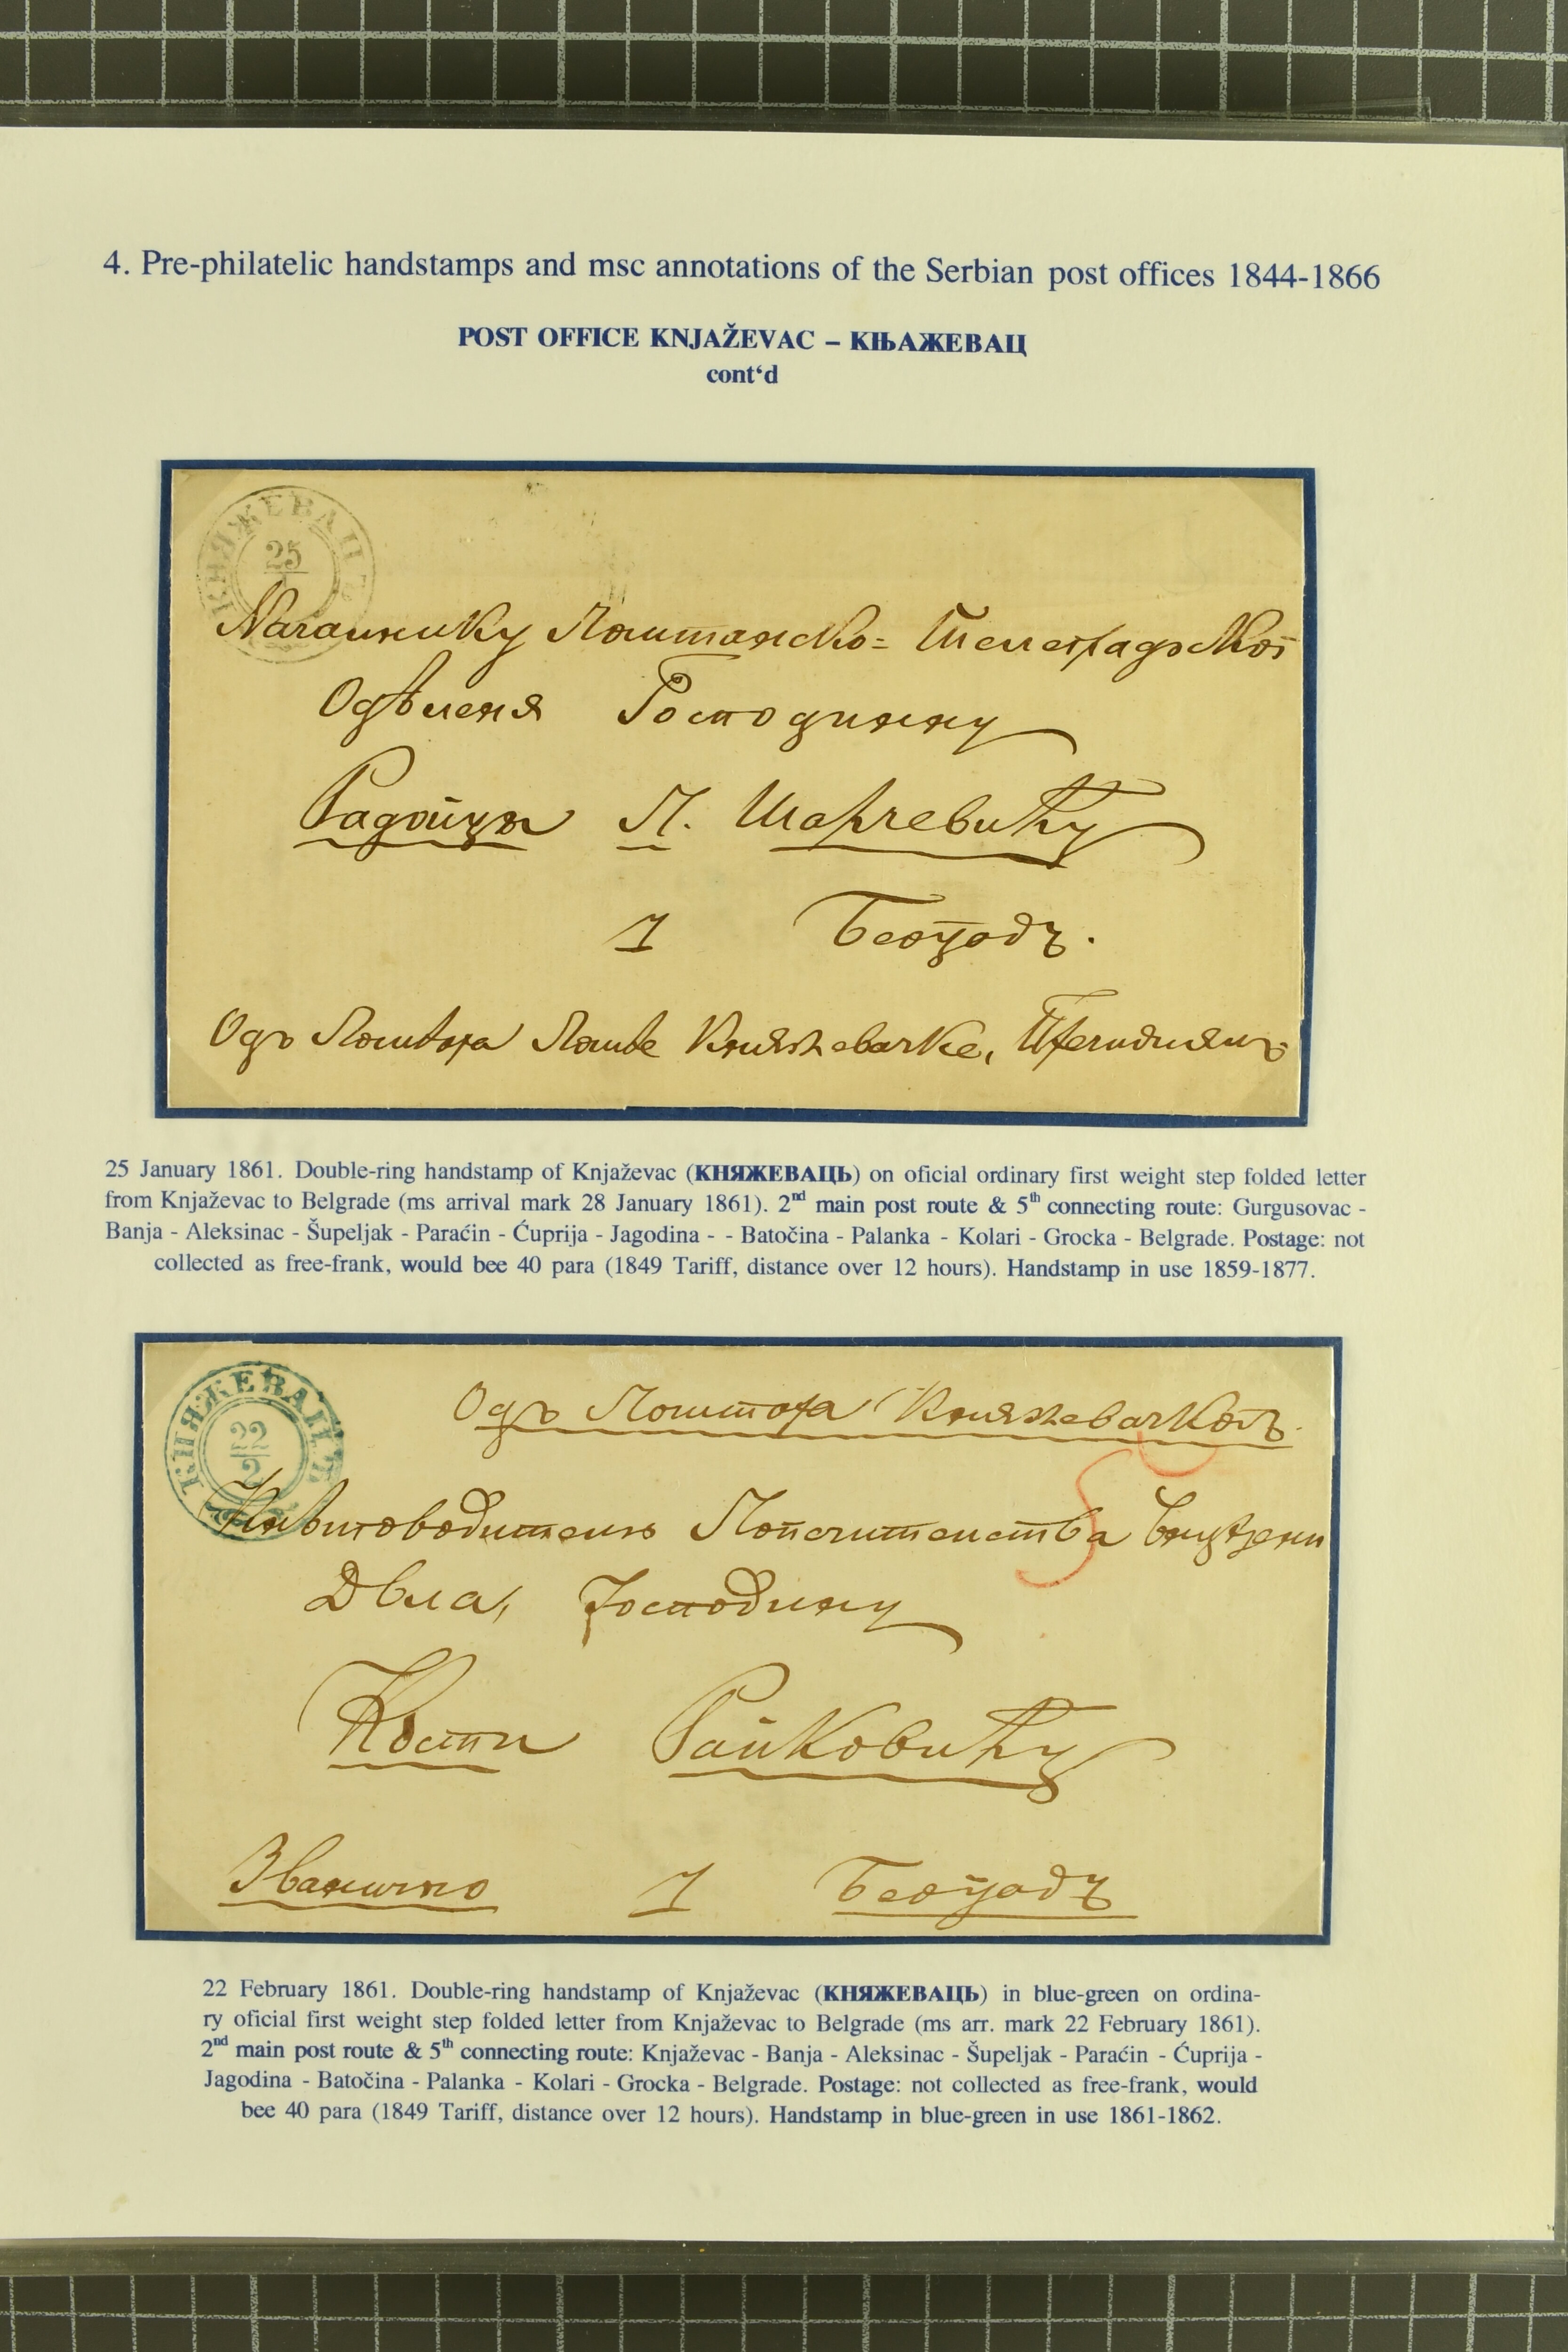 4. Pre-philatelic handstamps and msc annotations of the Serbian post offices 1844-1866
POST OFFICE KNJAŽEVAC – КЊАЖЕВАЦ
cont‘d
КНЯЖЕВАЦЪ
25
Одѣленя Господину
П.
1 Београдъ.
Одъ
25 January 1861. Double-ring handstamp of Knjaževac (КНЯЖЕВАЦЬ) on oficial ordinary first weight step folded letter
from Knjaževac to Belgrade (ms arrival mark 28 January 1861). 2nd main post route & 5th connecting route: Gurgusovac -
Banja - Aleksinac - Šupeljak - Paraćin - Ćuprija - Jagodina - - Batočina - Palanka - Kolari - Grocka - Belgrade. Postage: not
collected as free-frank, would bee 40 para (1849 Tariff, distance over 12 hours). Handstamp in use 1859-1877.
КНЯЖЕВАЦЪ
22
2
Одъ
Попечителства
Дѣла, Господину
Кости Райковићу
Званично 1 Београдъ
22 February 1861. Double-ring handstamp of Knjaževac (КНЯЖЕВАЦЬ) in blue-green on ordina-
ry oficial first weight step folded letter from Knjaževac to Belgrade (ms arr. mark 22 February 1861).
2nd main post route & 5th connecting route: Knjaževac - Banja - Aleksinac - Šupeljak - Paraćin - Ćuprija -
Jagodina - Batočina - Palanka - Kolari - Grocka - Belgrade. Postage: not collected as free-frank, would
bee 40 para (1849 Tariff, distance over 12 hours). Handstamp in blue-green in use 1861-1862.